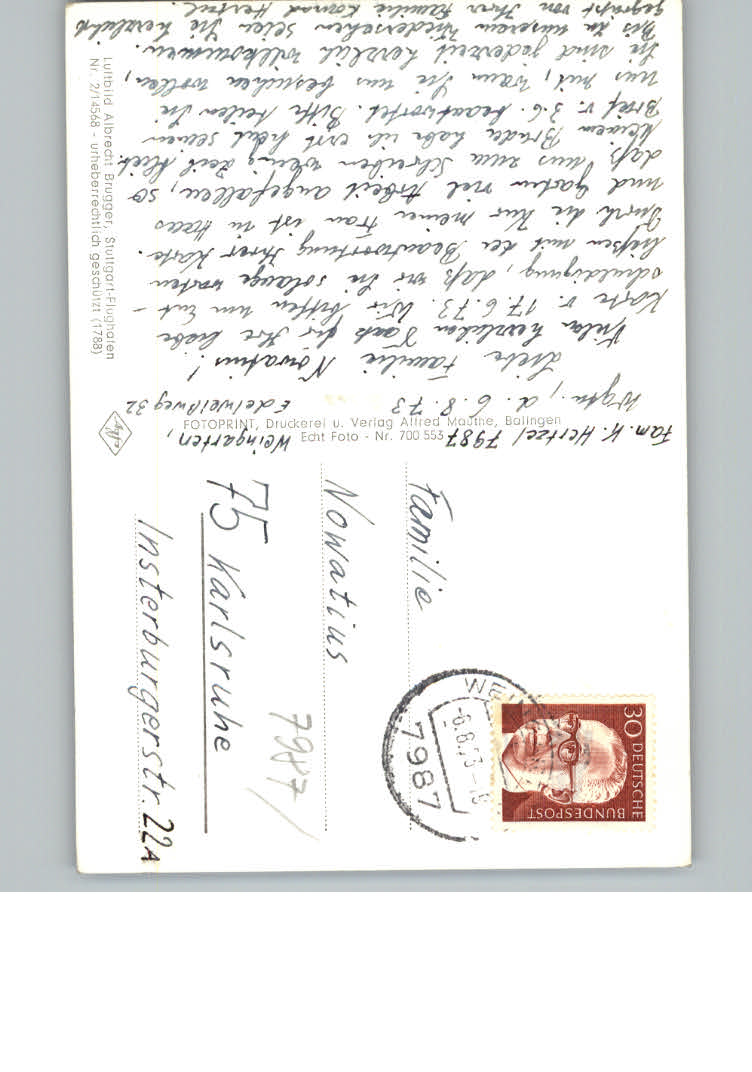 Fam. K. Hertzel 7987 Weingarten,
Edelweißweg 32
Wgtn., d. 6.8.73
Liebe Familie Nowatius!
Vielen herzlichen Dank für Ihre liebe
Karte v. 17.6.73. Wir bitten um Ent-
schuldigung, daß wir Sie solange warten
ließen mit der Beantwortung Ihrer Karte.
Durch die Kur meiner Frau ist in Haus
und Garten viel Arbeit angefallen, so
daß uns zum Schreiben wenig Zeit blieb.
Meinem Bruder habe ich erst heut seinen
Brief v. 3.6. beantwortet. Bitte teilen Sie
uns mit, wann Sie uns besuchen wollen,
Sie sind jederzeit herzlich willkommen.
Bis zu unserem Wiedersehen seien Sie herzlichst
gegrüßt von Ihrer Familie Konrad Hertzel.
FOTOPRINT, Druckerei u. Verlag Alfred Mauthe, Balingen
Echt Foto - Nr. 700 553
Luftbild Albrecht Brugger, Stuttgart-Flughafen
Nr. 2/14568 - urheberrechtlich geschützt (1788)
30 DEUTSCHE
BUNDESPOST
-6.8.73-
7987
Familie
Nowatius
75 Karlsruhe
Insterburgerstr. 22A
7987/